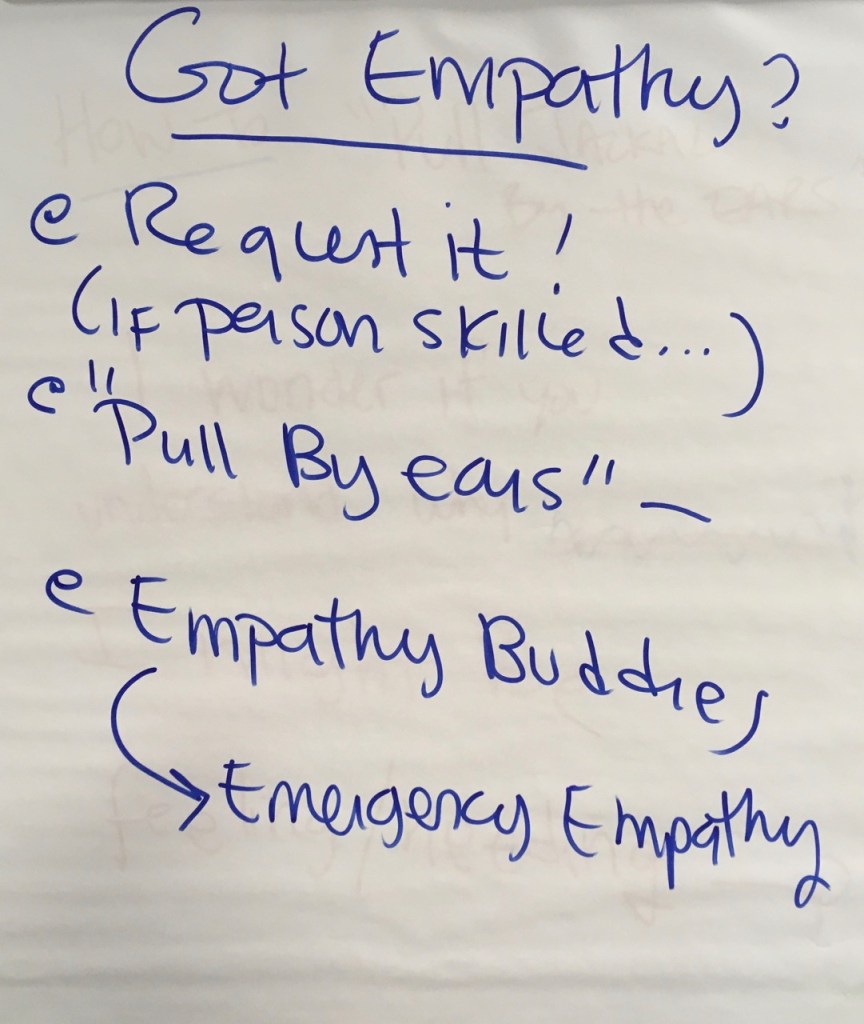 Got Empathy?
• Request it!
(IF person skilled...)
• "Pull By ears" –
• Empathy Buddies
→ Emergency Empathy